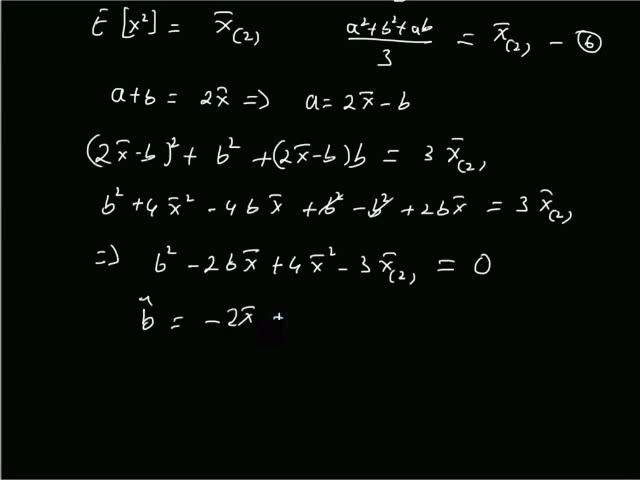 E [x²] = x̄₍₂₎   (a²+b²+ab)/3 = x̄₍₂₎ – ⑥
a+b = 2x̄ => a = 2x̄ – b
(2x̄–b)² + b² + (2x̄–b)b = 3 x̄₍₂₎
b² + 4x̄² – 4bx̄ + b² – b² + 2bx̄ = 3 x̄₍₂₎
=> b² – 2bx̄ + 4x̄² – 3x̄₍₂₎ = 0
b̂ = – 2x̄ +